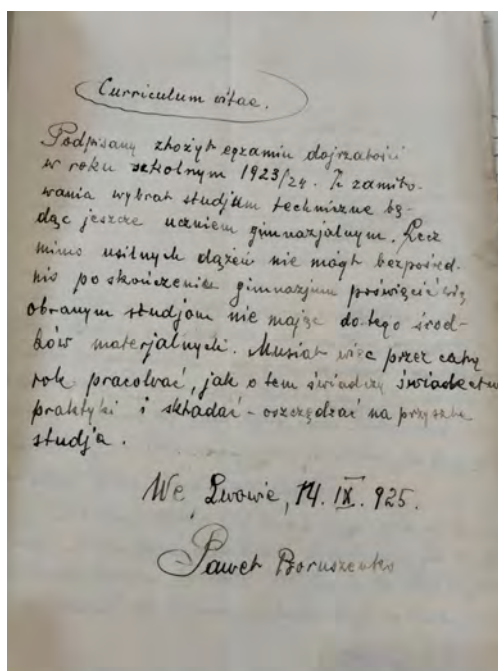 Curriculum vitae.
Podpisany złożył egzamin dojrzałości
w roku szkolnym 1923/24. Z zamiło-
wania wybrał studjum techniczne bę-
dąc jeszcze uczniem gimnazjalnym. Lecz
mimo usilnych dążeń nie mógł bezpośred-
nio po skończeniu gimnazjum poświęcić się
obranym studjom nie mając do tego środ-
ków materjalnych. Musiał więc przez cały
rok pracować, jak o tem świadczy świadectwo
praktyki i składać - oszczędzać na przyszłe
studja.
We Lwowie, 14. IX. 925.
Paweł Boruszenko